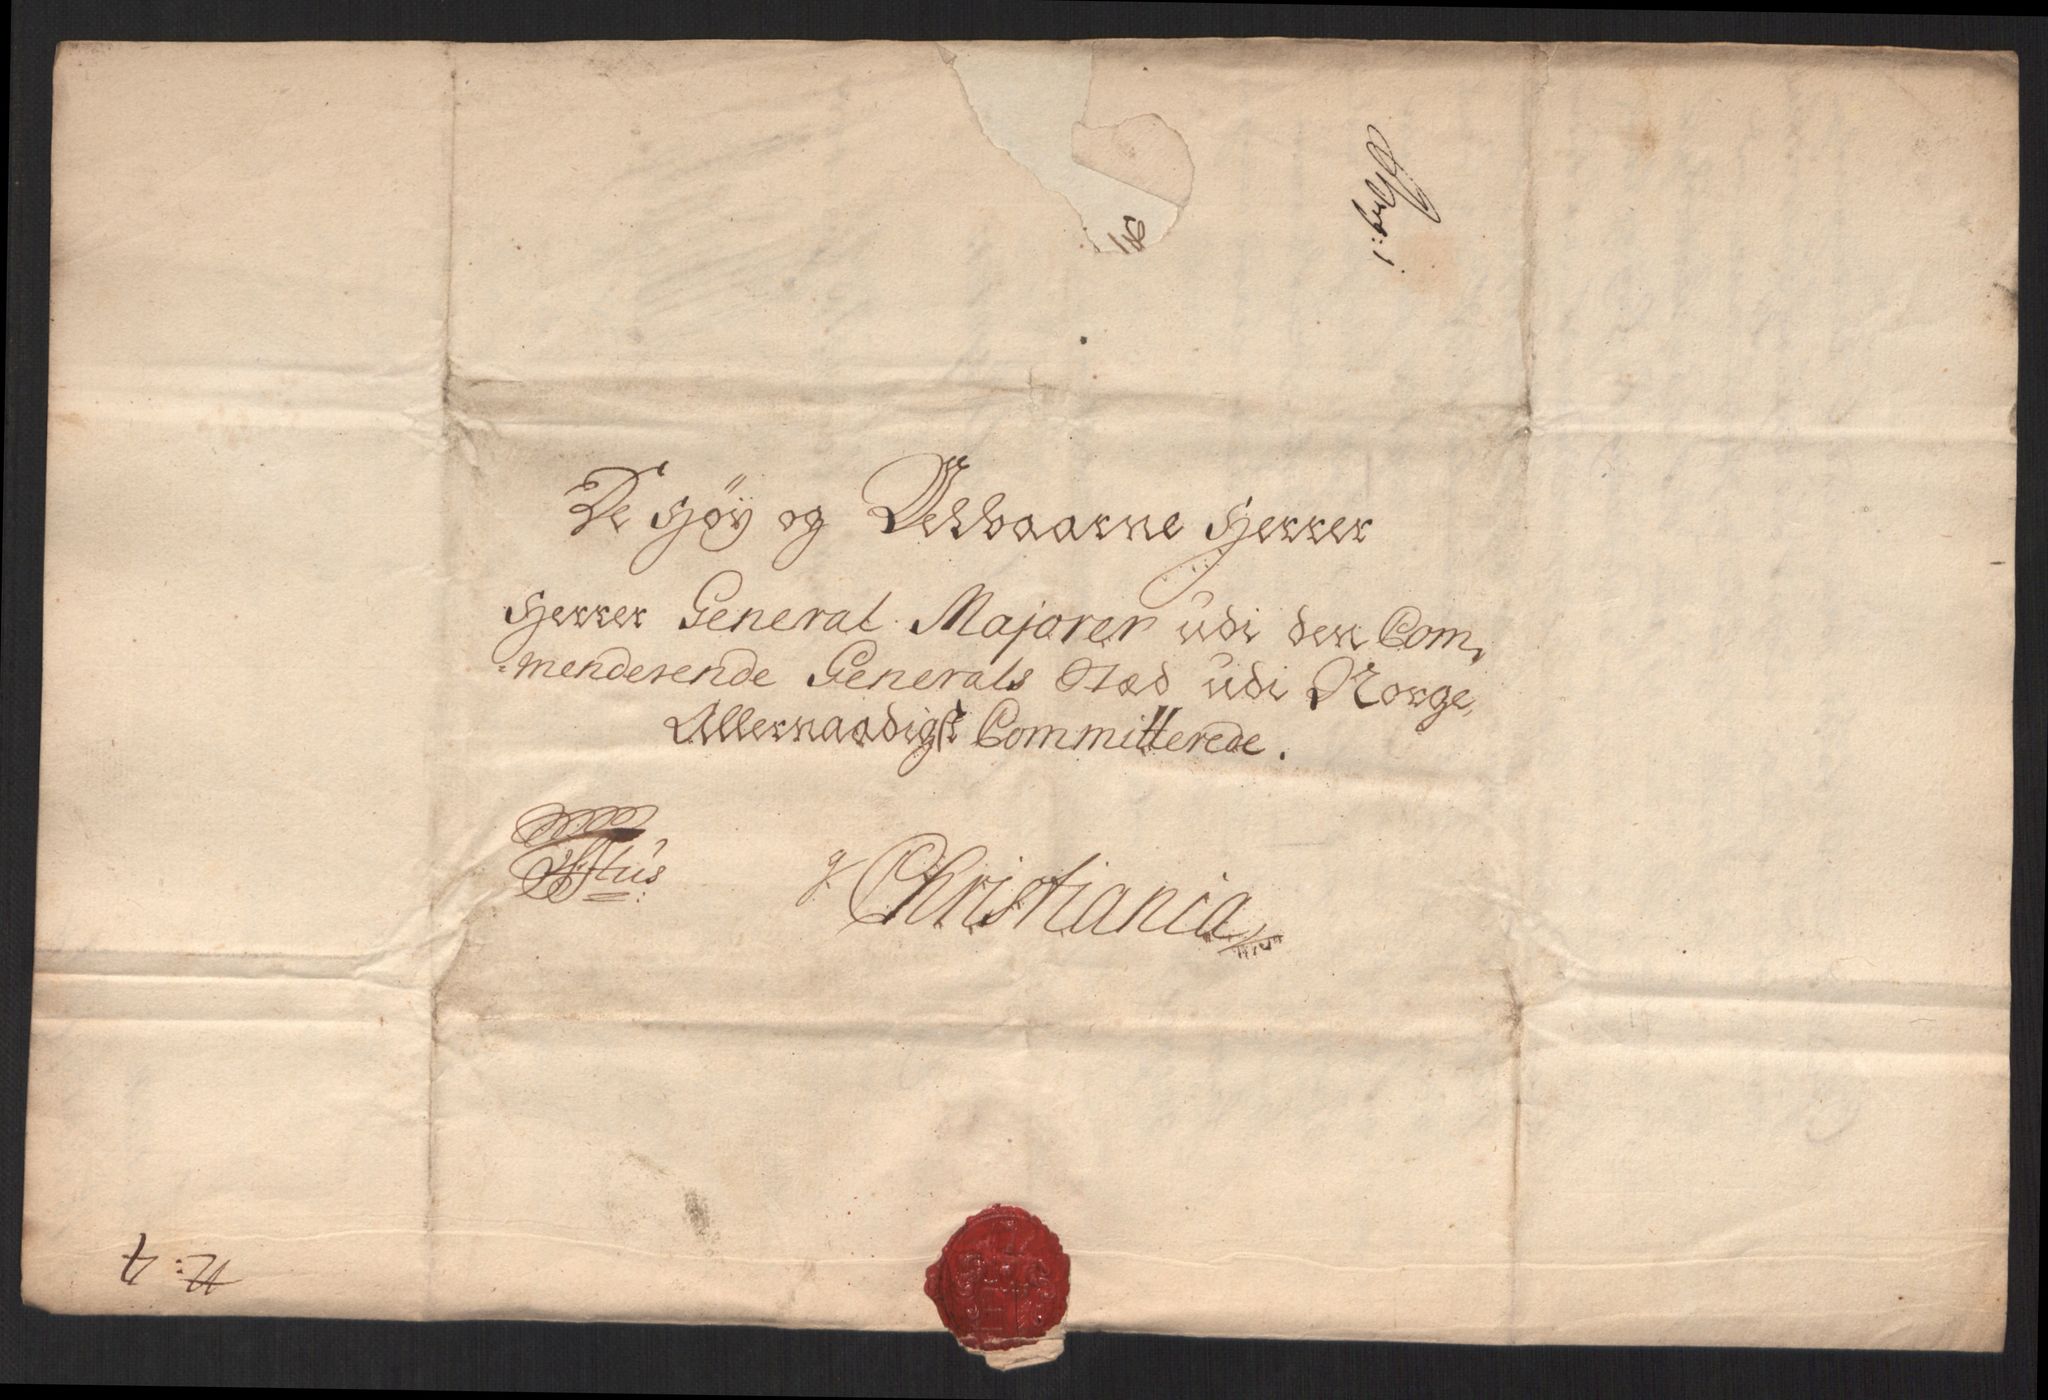 De Høy og Velbaarne Herrer
Herrer General Majorer udi den Com,
=menderende Generals Stæd udi Norge,
Allernaadigst Committerede.
Christiania